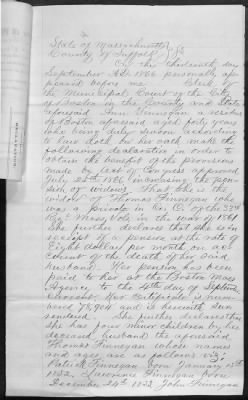 State of Massachusetts
County of Suffolk } ss
On this thirteenth day
September A.D. 1866 personally ap
peared before me Clerk of
the Municipal Court of the City
of Boston in the County and State
aforesaid Ann Finnegan a resident
of Boston aforesaid aged forty years
who being duly sworn according
to law doth on her oath make the
following declaration in order to
obtain the benefit of the provisions
made by act of Congress approved
July 25th 1866 increasing the pen
sion of widows. That she is the
widow of Thomas Finnegan who
was a private in Co. 22d
Regt Mass. Vols. in the war of 1861
She further declares that she is in
receipt of a pension at the rate of
Eight dollars per month on ac
count of the death of her said
husband. Her pension has been
paid to her at the Boston Mass
Agency to the 4th day of September
present. Her Certificate is num
bered 78,904 and is herewith sur
rendered. She further declares that
she has four minor children by her
deceased husband the aforesaid
Thomas Finnegan whose names
and ages are as follows viz:
Patrick Finnegan born January 15th
1852, Finnegan born
December 24th 1853 John Finnegan